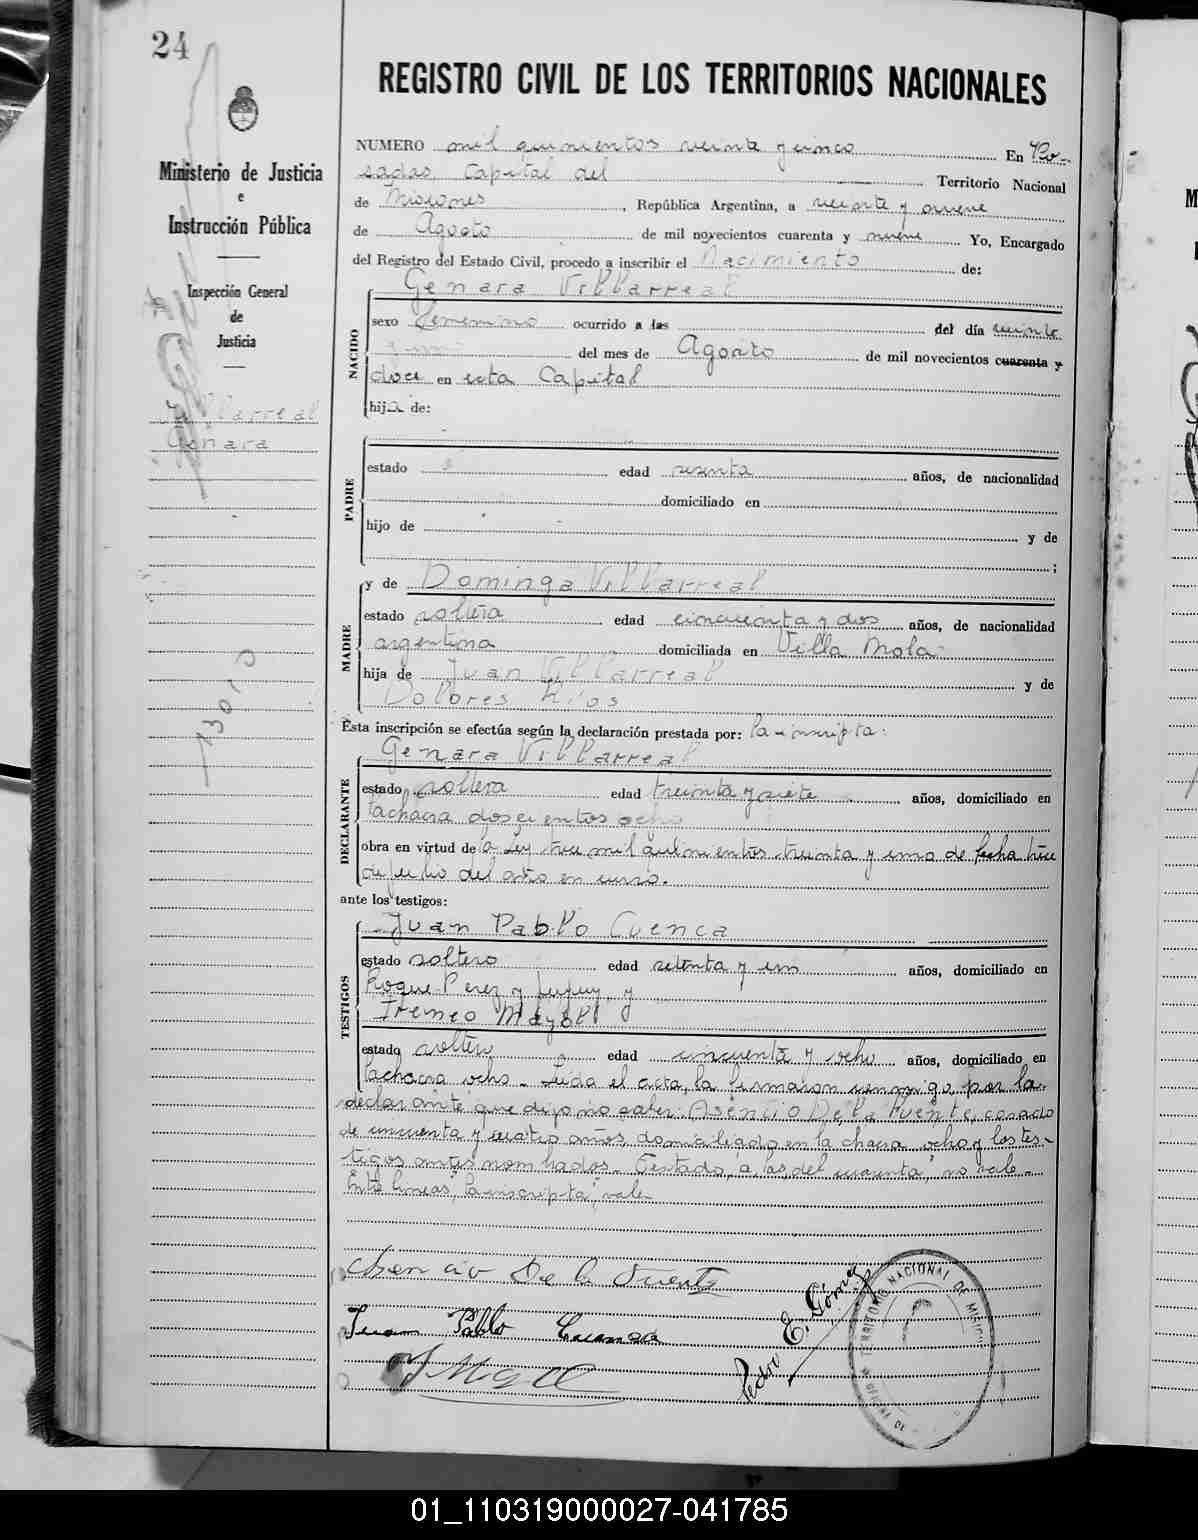 24
REGISTRO CIVIL DE LOS TERRITORIOS NACIONALES
Ministerio de Justicia
e
Instrucción Pública
Inspección General
de
Justicia
Villarreal
Genara
NUMERO mil quinientos veinte y cinco En Po-
sadas, Capital del Territorio Nacional
de Misiones, República Argentina, a veinte y nueve
de Agosto de mil novecientos cuarenta y nueve Yo, Encargado
del Registro del Estado Civil, procedo a inscribir el Nacimiento de:
NACIDO
Genara Villarreal
sexo femenino ocurrido a las del día veinte
del mes de Agosto de mil novecientos cuarenta y
doce en esta Capital
hija de:
PADRE
estado edad años, de nacionalidad
domiciliado en
hijo de y de
;
MADRE
y de Dominga Villarreal
estado soltera edad cincuenta y dos años, de nacionalidad
argentina domiciliada en Villa Mola
hija de Juan Villarreal y de
Dolores Rios
Esta inscripción se efectúa según la declaración prestada por: la inscripta:
DECLARANTE
Genara Villarreal
estado soltera edad treinta y siete años, domiciliado en
la chacra doscientos ocho
obra en virtud de la Ley trece mil quinientos treinta y uno de fecha trece
de julio del año en curso.
ante los testigos:
TESTIGOS
Juan Pablo Cuenca
estado soltero edad setenta y un años, domiciliado en
Roque Perez y Jujuy, y
Ireneo Mayol
estado soltero edad cincuenta y ocho años, domiciliado en
la chacra ocho. Leída el acta, la firmaron conmigo, por la
declarante que dijo no saber: Asencio De la Puente, casado
de cincuenta y cuatro años, domiciliado en la chacra ocho y los tes-
tigos antes nombrados. Testado, "a las, del cuarenta", no vale.
Entre lineas, "la inscripta", vale.
Asencio De la Fuente
Juan Pablo Cuenca
Pedro E. Gómez
TERRITORIO NACIONAL DE MISIONES
01_110319000027-041785